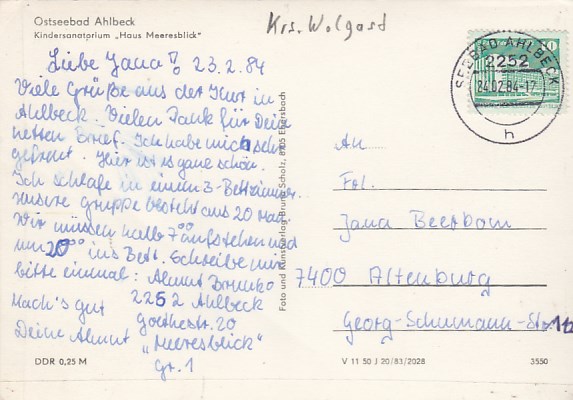 Ostseebad Ahlbeck
Kindersanatorium „Haus Meeresblick"
Krs. Wolgast
Liebe Jana! 23.2.84
Viele Grüße aus der Kur in
Ahlbeck. Vielen Dank für Dein
netten Brief. Ich habe mich sehr
gefreut. Hier ist es ganz schön.
Ich schlafe in einem 3-Bettzimmer.
Unsere Gruppe besteht aus 20
Wir müssen halb 7°° aufstehen und
um 20°° ins Bett. Schreibe mir
bitte einmal: Almut
2252 Ahlbeck
Goethestr. 20
„Meeresblick"
Gr. 1
Mach's gut
Deine Almut
DDR 0,25 M
Foto und Kunstverlag Bruno Scholz, 8105 Ebersbach
V 11 50 J 20/83/2028
3550
SEEBAD AHLBECK
2252
24.02.84-17
h
An
Frl.
Jana Beerbom
7400 Altenburg
Georg-Schumann-Str. 112